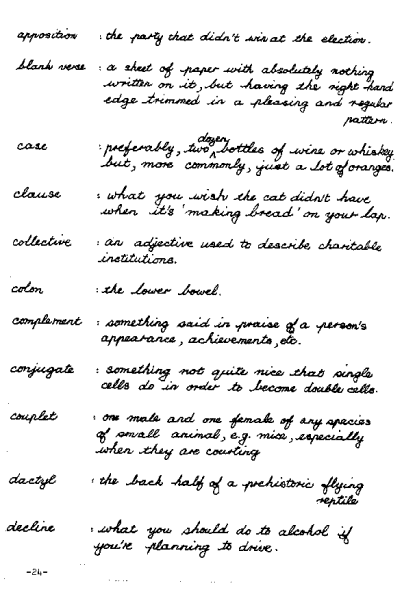 apposition : the party that didn't win at the election.
blank verse : a sheet of paper with absolutely nothing
written on it, but having the right hand
edge trimmed in a pleasing and regular
pattern.
case : preferably, two dozen bottles of wine or whiskey
but, more commonly, just a lot of oranges.
clause : what you wish the cat didn't have
when it's 'making bread' on your lap.
collective : an adjective used to describe charitable
institutions.
colon : the lower bowel.
complement : something said in praise of a person's
appearance, achievements, etc.
conjugate : something not quite nice that single
cells do in order to become double cells.
couplet : one male and one female of any species
of small animal, e.g. mice, especially
when they are courting
dactyl : the back half of a prehistoric flying
reptile
decline : what you should do to alcohol if
you're planning to drive.
-24-